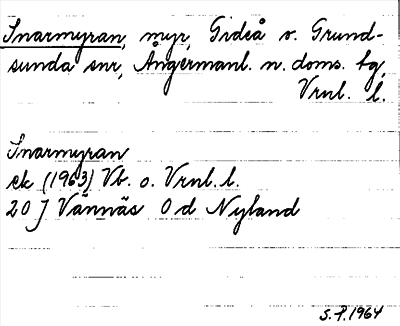 Snarmyran, myr, Gideå o. Grund-
sunda snr, Ångermanl. n. doms. bg,
Vrnl. l.
Snarmyran
ek (1963) Vb. o. Vrnl. l.
20 J Vännäs Od Nyland
S.P. 1964